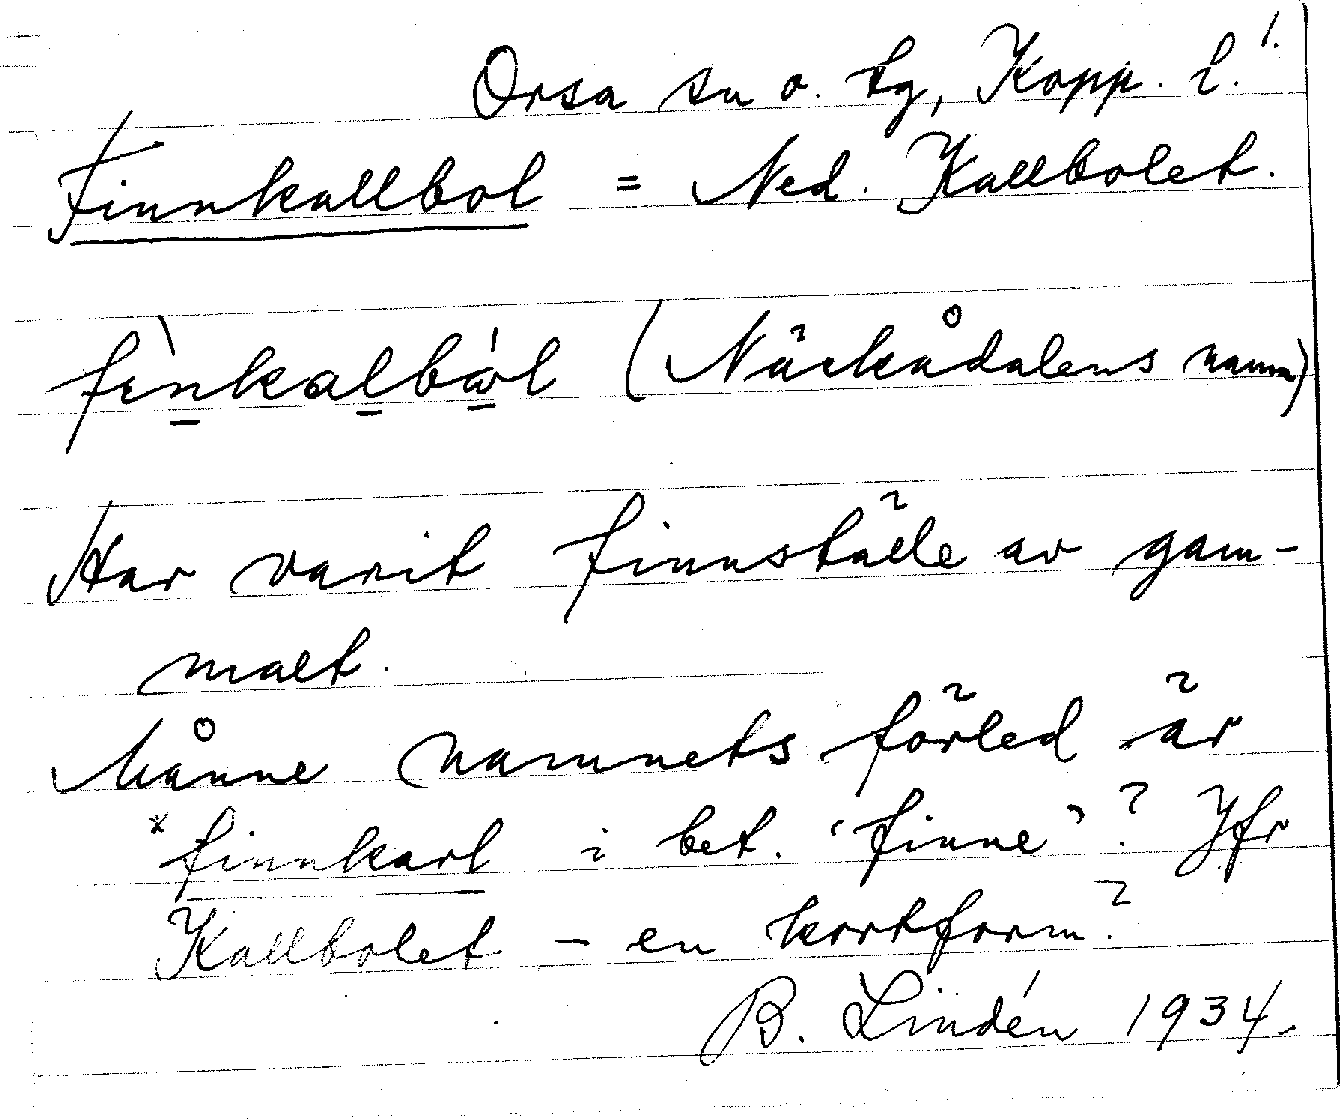 Orsa sn o. tg, Kopp. l.
Finnkallbol = Ned. Kallbolet.
(Näckådalens namn)
Har varit finnställe av gam-
malt.
Månne namnets förled är
*finnkarl i bet. 'finne'? Jfr
Kallbolet – en kortform?
B. Lindén 1934.